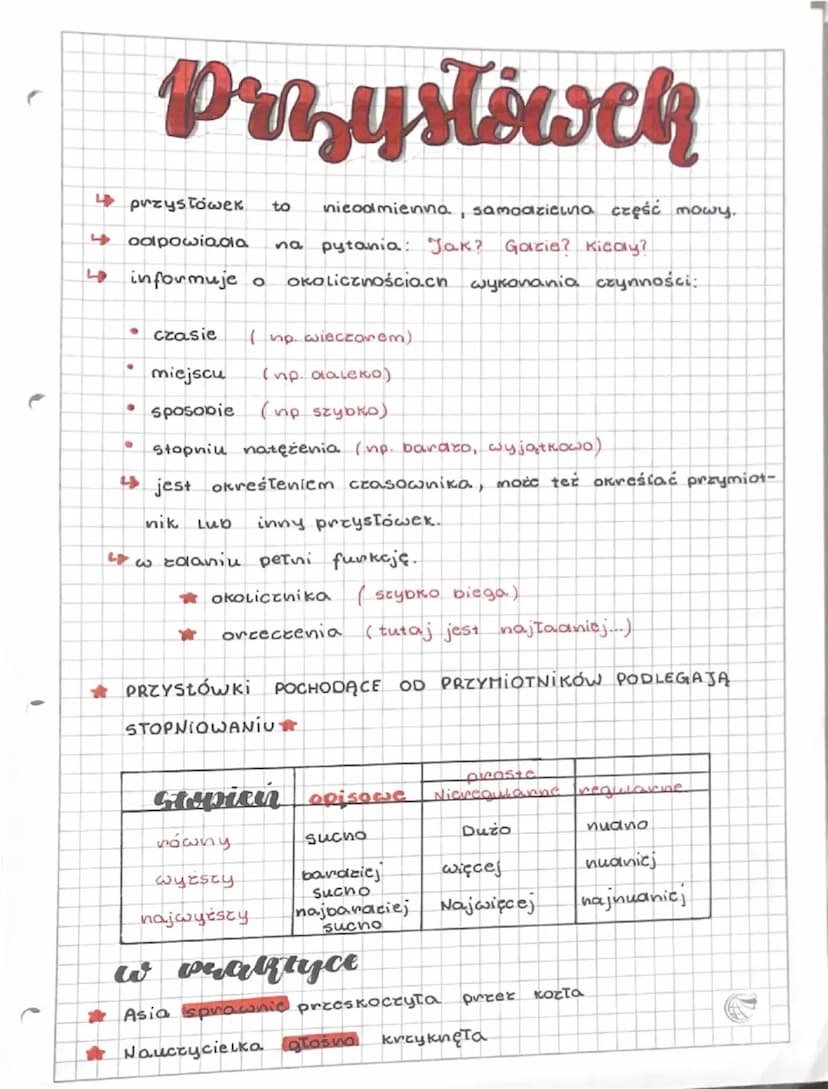 Przysłówek
przysłówek to nieodmienna, samodzielna część mowy.
odpowiada na pytania: Jak? Gdzie? Kiedy?
informuje o okolicznościach wykonania czynności:
• czasie (np. wieczorem)
• miejscu (np. daleko)
• sposobie (np szybko)
• stopniu natężenia (np. bardzo, wyjątkowo)
jest określeniem czasownika, może też określać przymiot-
nik lub inny przysłówek.
w zdaniu pełni funkcję.
okolicznika (szybko biega)
orzeczenia (tutaj jest najładniej...)
PRZYSŁÓWKI POCHODĄCE OD PRZYMIOTNIKÓW PODLEGAJĄ
STOPNIOWANIU
proste
Stopień opisowe Nieregularne regularne
równy sucho Dużo nudno
wyższy bardziej sucho więcej nudniej
najwyższy najbardziej sucho Najwięcej najnudniej
w praktyce
Asia sprawnie przeskoczyła przez kozła
Nauczycielka głośno krzyknęła